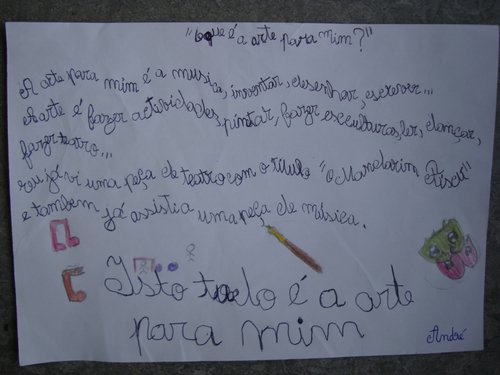 "O que é a arte para mim?"
A arte para mim é a musica, inventar, desenhar, escrever...
A arte é fazer actividades, pintar, fazer esculturas, ler, dançar,
fazer teatro...
eu já vi uma peça de teatro com o titulo "o Mandarim Fischi"
e também já assisti a uma peça de música.
Isto tudo é a arte
para mim
André